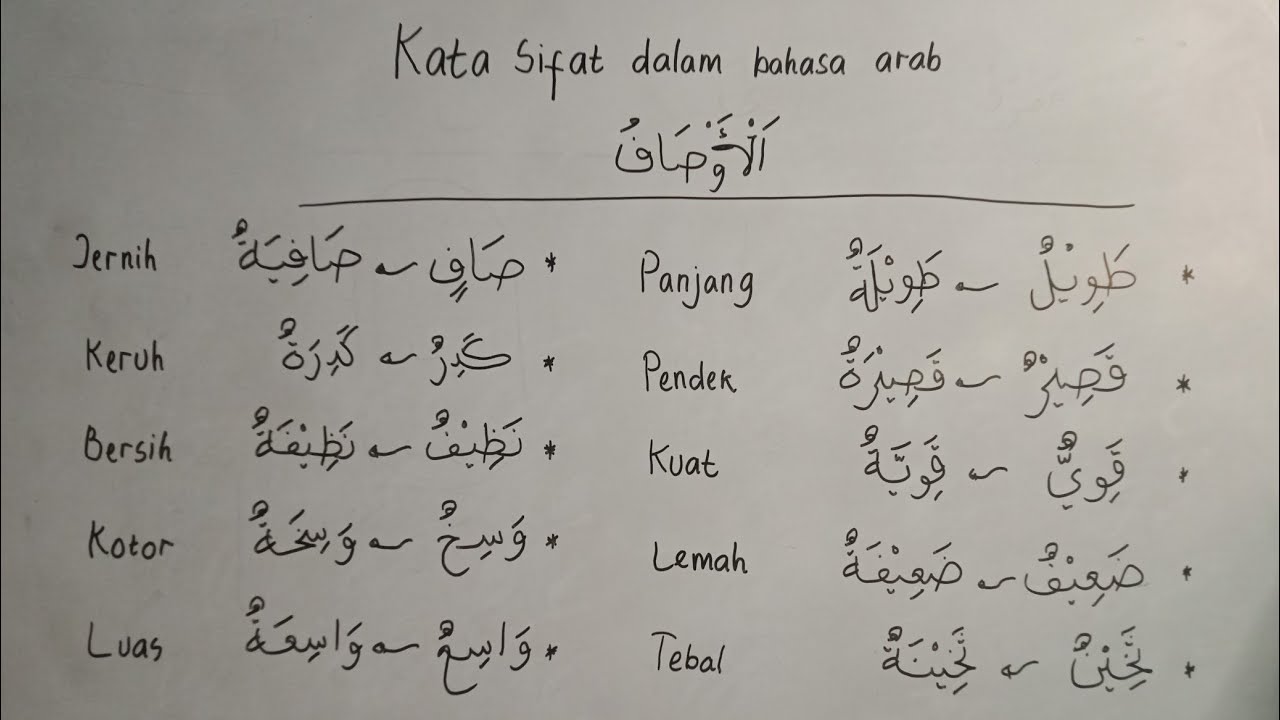 Kata Sifat dalam bahasa arab
اَلْأَوْصَافُ
Jernih * صَافٍ ~ صَافِيَةٌ
Keruh * كَدِرٌ ~ كَدِرَةٌ
Bersih * نَظِيْفٌ ~ نَظِيْفَةٌ
Kotor * وَسِخٌ ~ وَسِخَةٌ
Luas * وَاسِعٌ ~ وَاسِعَةٌ
Panjang * طَوِيْلٌ ~ طَوِيْلَةٌ
Pendek * قَصِيْرٌ ~ قَصِيْرَةٌ
Kuat * قَوِيٌّ ~ قَوِيَّةٌ
Lemah * ضَعِيْفٌ ~ ضَعِيْفَةٌ
Tebal * ثَخِيْنٌ ~ ثَخِيْنَةٌ